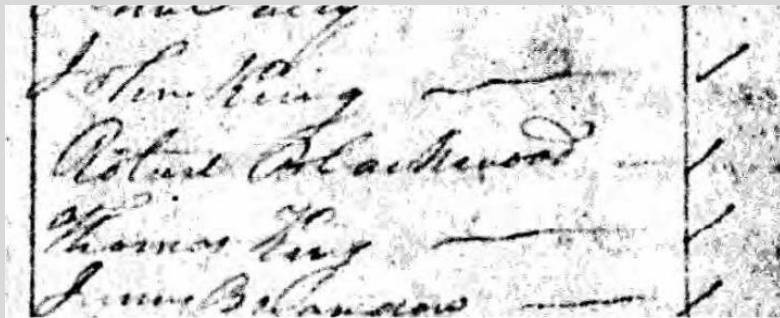 John King
Robert Blackwood
Thomas King
James